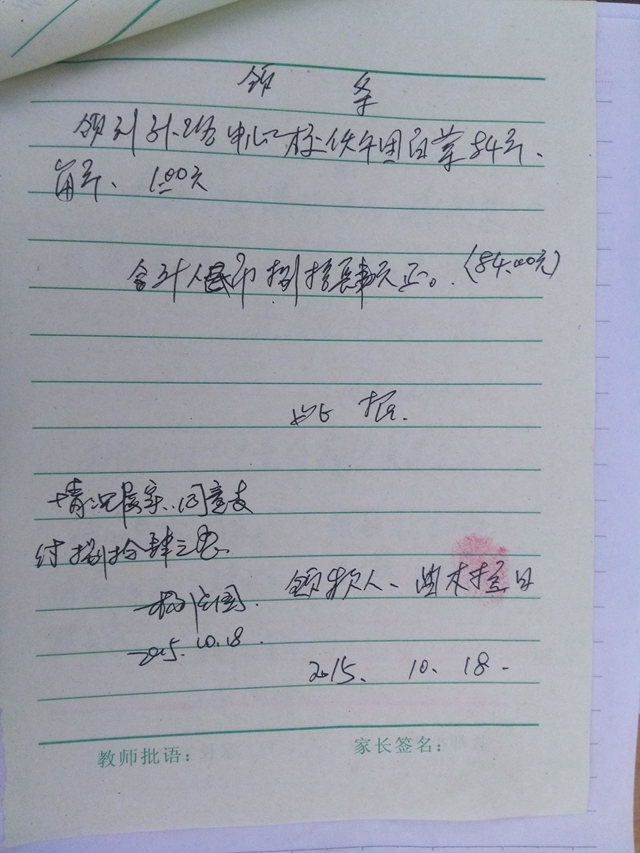 领 条
领到 中心校伙午团白菜84斤、
每斤、1.00元
合计人民币捌拾肆元正。(84.00元)
此 据.
情况属实.同意支
付捌拾肆元
2015.10.18.
领款人、
2015、 10、 18.
教师批语: 家长签名: